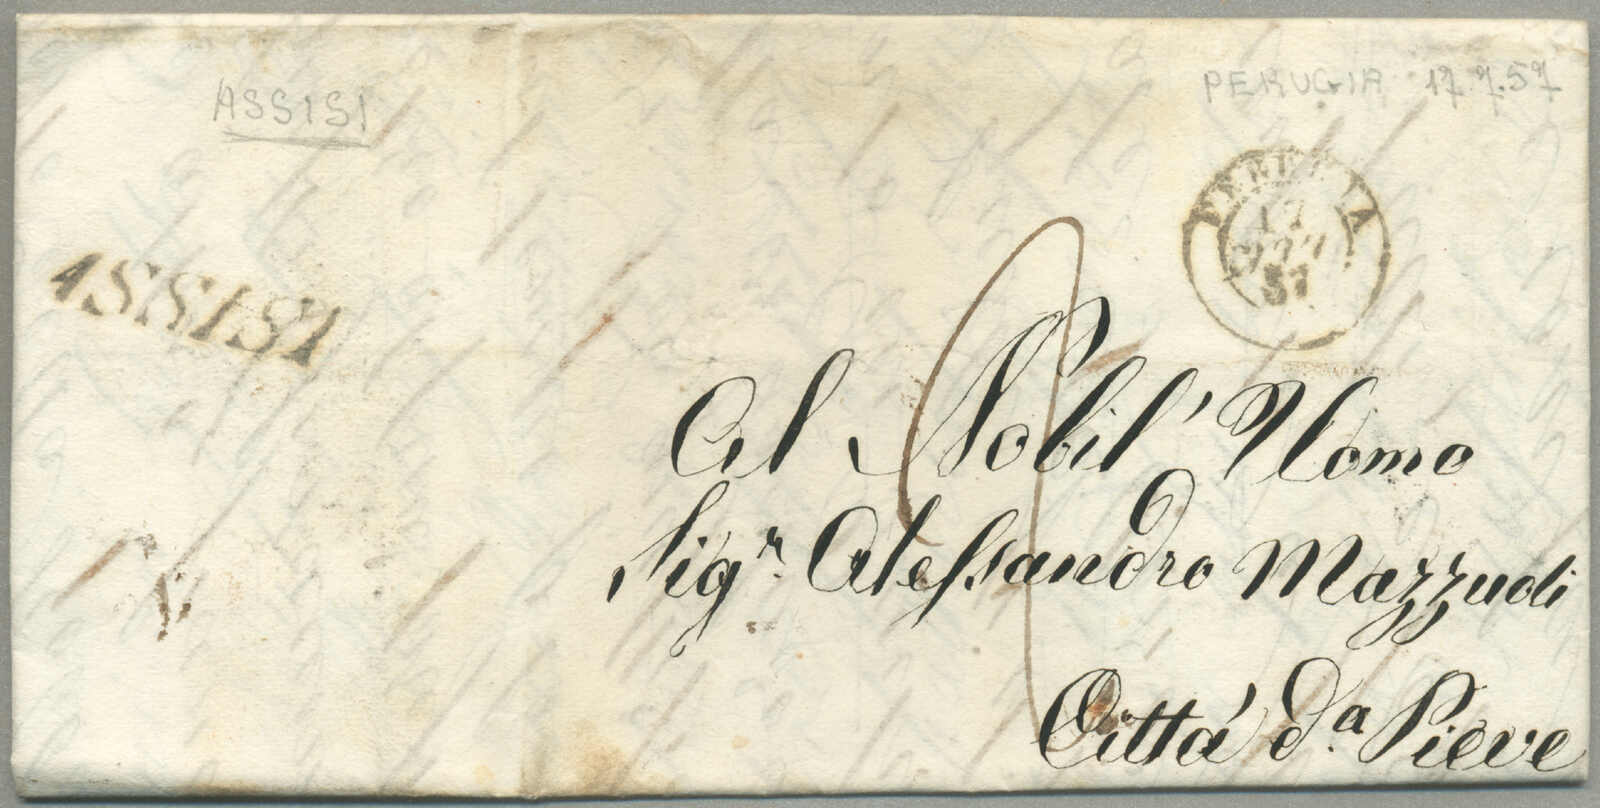 ASSISI
PERUGIA 17.7.57
PERUGIA
17
57
ASSISI
Al Nobil' Uomo
Sigr. Alessandro Mazzuoli
Cittá d.a Pieve